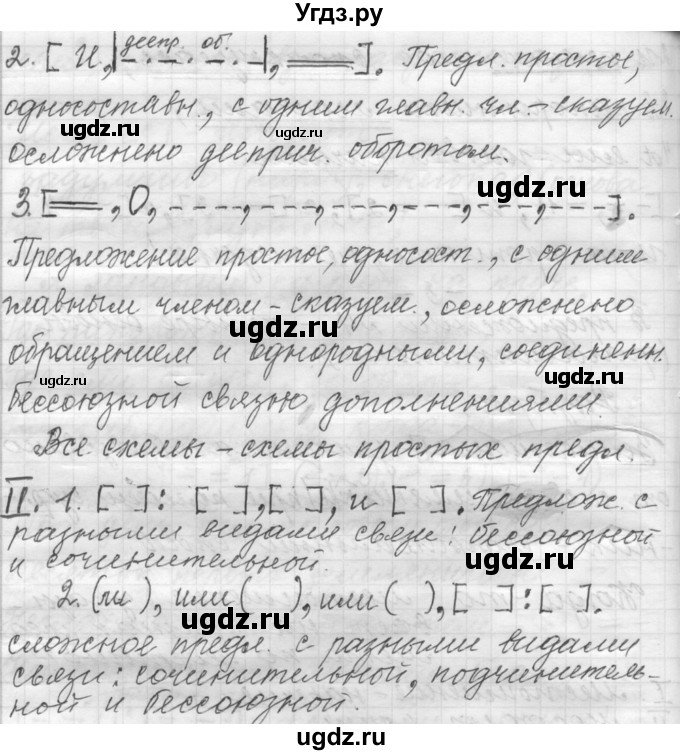 Угдз.ру
2. [ И, |дееpr. об.|, ═══ ]. Предл. простое,
односоставн., с одним главн. чл. - сказуем.
осложнено дееприч. оборотом.
3. [ ═══ , О, ----, ---, ---, ---, ---, --- ].
Предложение простое, односост., с одним
главным членом - сказуем., осложнено
обращением и однородными, соединенн.
бессоюзной связью дополнениями.
Все схемы - схемы простых предл.
II. 1. [ ] : [ ], [ ], и [ ]. Предлож. с
разными видами связи: бессоюзной
и сочинительной.
2. (ли ), или ( ), или ( ), [ ] : [ ].
сложное предл. с разными видами
связи: сочинительной, подчинитель-
ной и бессоюзной.
ugdz.ru
ugdz.ru
ugdz.ru
ugdz.ru
ugdz.ru
ugdz.ru
ugdz.ru
ugdz.ru
ugdz.ru
ugdz.ru
ugdz.ru
ugdz.ru
ugdz.ru